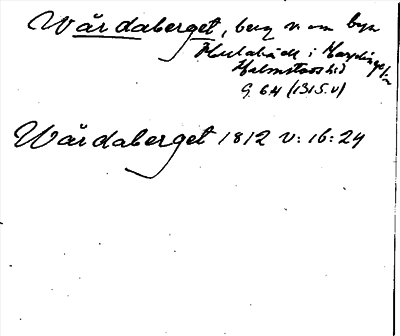 Wårdaberget, berg v om byn
i Harplinge sn
Halmstads hd
G. 64 (1315.v)
Wårdaberget 1812 V: 16: 24